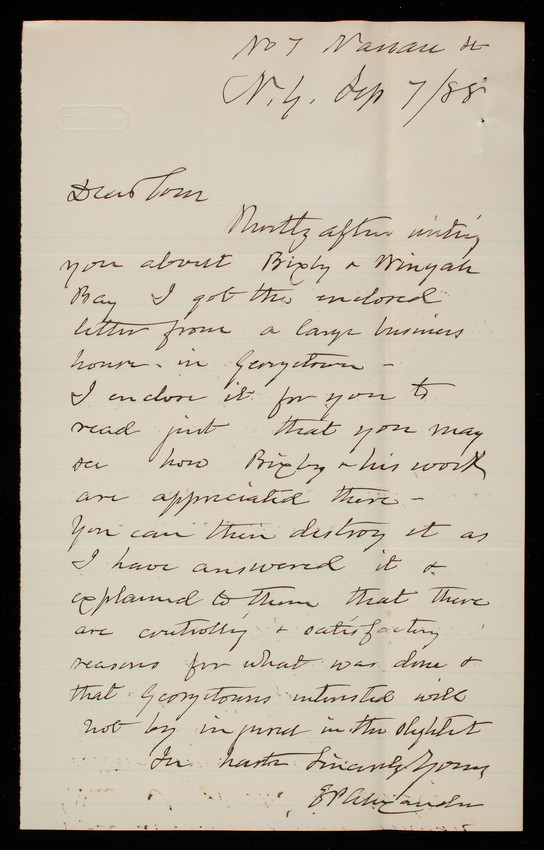 No 7 Nassau St
N.Y. Sep 7/88
Dear Tom
Shortly after writing
you about Bixby & Winyah
Bay I got the enclosed
letter from a large business
house in Georgetown –
I enclose it for you to
read just that you may
see how Bixby & his work
are appreciated there –
You can then destroy it as
I have answered it &
explained to them that there
are controlling & satisfactory
reasons for what was done &
that Georgetowns interests will
not be injured in the slightest
In haste Sincerely Yours
EPAlexander